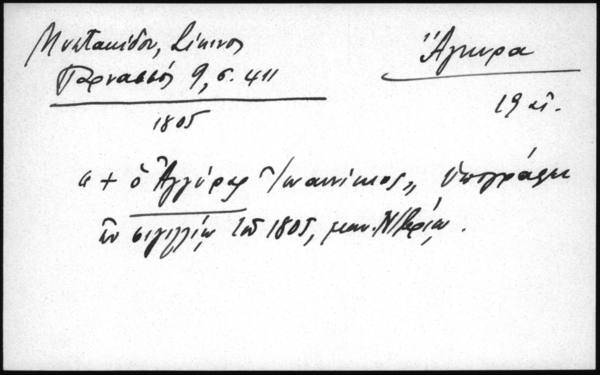 Μυστακίδου, Σίκινος
Παρνασσός 9, σ. 411
1805
Ἄγκυρα
19 αἰ.
" + ὁ Ἀγκύρας Ἰωαννίκιος ", ὑπογράφει
ἐν σιγιλλίῳ τοῦ 1805, μαι.